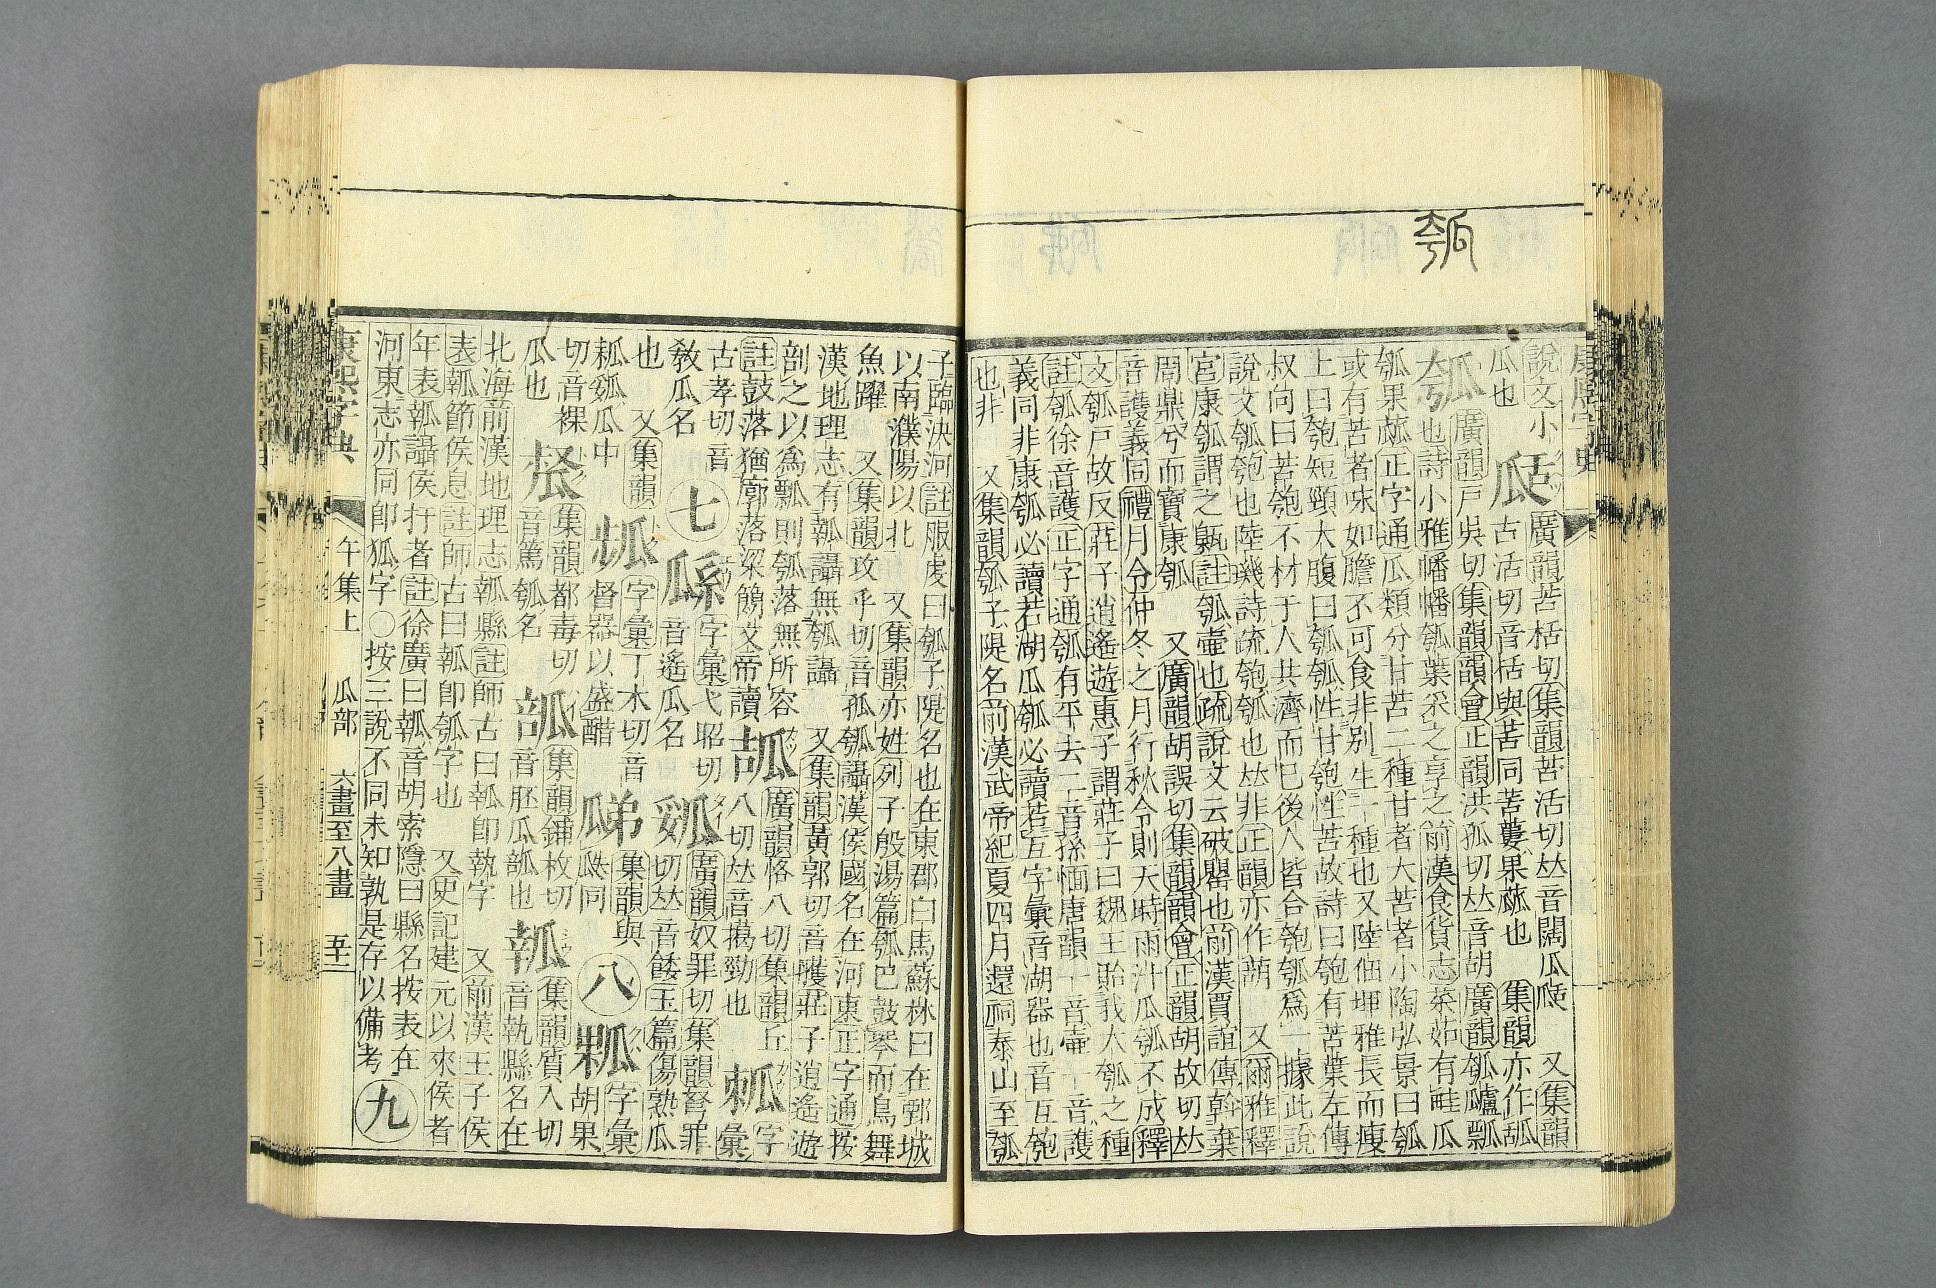 瓠
說文小
瓜也 𤬁 廣韻苦栝切集韻苦活切𠀤音闊瓜𤬁 又集韻
古活切音栝與苦同苦蔞果蓏也 集韻亦作𤬁
瓠 廣韻戸吳切集韻韻會正韻洪孤切𠀤音胡廣韻瓠㼾瓢
也詩小雅幡幡瓠葉采之亨之前漢食貨志菜茹有畦瓜
瓠果蓏正字通瓜類分甘苦二種甘者大苦者小陶弘景曰瓠
或有苦者味如膽不可食非別生一種也又陸佃埤雅長而瘦
上曰匏短頸大腹曰瓠瓠性甘匏性苦故詩曰匏有苦葉左傳
叔向曰苦匏不材于人共濟而已後人皆合匏瓠爲一據此說
說文瓠匏也陸璣詩疏匏瓠也𠀤非正韻亦作葫 又爾雅釋
宮康瓠謂之甈註瓠壷也疏說文云破罌也前漢賈誼傳斡棄
周鼎兮而寶康瓠 又廣韻胡誤切集韻韻會正韻胡故切𠀤
音護義同禮月令仲冬之月行秋令則天時雨汁瓜瓠不成釋
文瓠戸故反莊子逍遙遊惠子謂莊子曰魏王貽我大瓠之種
註瓠徐音護正字通瓠有平去二音孫愐唐韻一音壷一音護
義同非康瓠必讀若湖瓜瓠必讀若互字彙音湖器也音互匏
也非 又集韻瓠子隄名前漢武帝紀夏四月還祠泰山至瓠
子臨決河註服虔曰瓠子隄名也在東郡白馬蘇林曰在鄄城
以南濮陽以北 又集韻亦姓列子殷湯篇瓠巴鼓琴而鳥舞
魚躍 又集韻攻乎切音孤瓠讘漢侯國名在河東正字通按
漢地理志有瓡讘無瓠讘 又集韻黃郭切音雘莊子逍遙遊
剖之以爲瓢則瓠落無所容
註鼓落猶廓落梁簡文帝讀 㼤 廣韻恪八切集韻丘
八切𠀤音劼勁也 㼛 字彙
古孝切音
敎瓜名 七 䌛 字彙弋昭切
音遙瓜名 㼏 廣韻奴罪切集韻弩罪
切𠀤音餧玉篇傷熟瓜
也 又集韻
㼏㼏瓜中 字彙丁木切音
督器以盛醋 集韻與
瓞同 八 㼪 字彙
胡果
切音裸
瓜也 集韻都毒切
音篤瓠名 㼜 集韻鋪枚切
音胚瓜㼜也 瓡 集韻質入切
音執縣名在
北海前漢地理志瓡縣註師古曰瓡卽執字 又前漢王子侯
表瓡節侯息註師古曰瓡卽瓠字也 又史記建元以來侯者
年表瓡讘侯扜者註徐廣曰瓡音胡索隱曰縣名按表在
河東志亦同卽狐字〇按三說不同未知孰是存以備考 九
康熙字典 午集上 瓜部 六畫至八畫 五十一